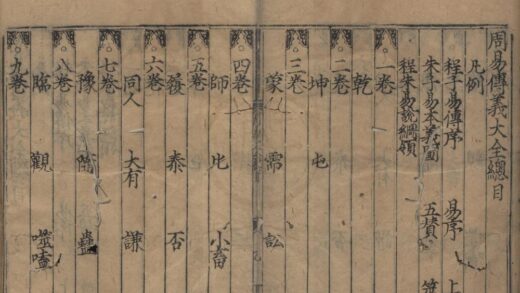 周易傳義大全總目
凡例
程子易傳序 易序 上
朱子易本義圖 五賛 筮
程朱易說綱領
一卷
乾
二卷
坤 屯
三卷
蒙 需 訟
四卷
師 比 小畜
五卷
履 泰 否
六卷
同人 大有 謙
七卷
豫 隨 蠱
八卷
臨 觀 噬嗑
九卷